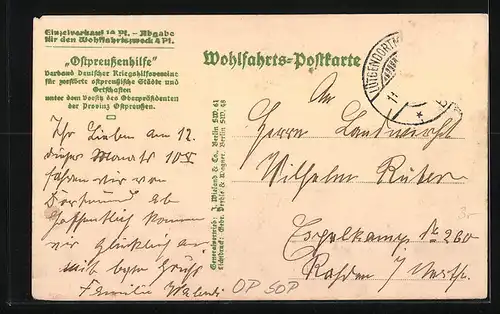 Einzelverkauf 10 Pf. – Abgabe
für den Wohlfahrtszweck 4 Pf.
„Ostpreußenhilfe"
Verband Deutscher Kriegshilfsvereine
für zerstörte ostpreußische Städte und
Ortschaften
unter dem Vorsitz des Oberpräsidenten
der Provinz Ostpreußen.
Wohlfahrts-Postkarte
LÜTGENDORTM
Ihr Lieben am 12.
dieses Monats 10
fahren wir von
Dortmund ab
hoffentlich kommen
wir glücklich an
mit beste Grüße
Familie
Generalvertrieb: J. Wiesand & Co. Berlin SW. 61
Lichtdruck: Gebr. Berlin SW. 48
An
Herrn Landwirth
Wilhelm Rüter
Espelkamp No 260
Rahden i/Westf.
OP SOP